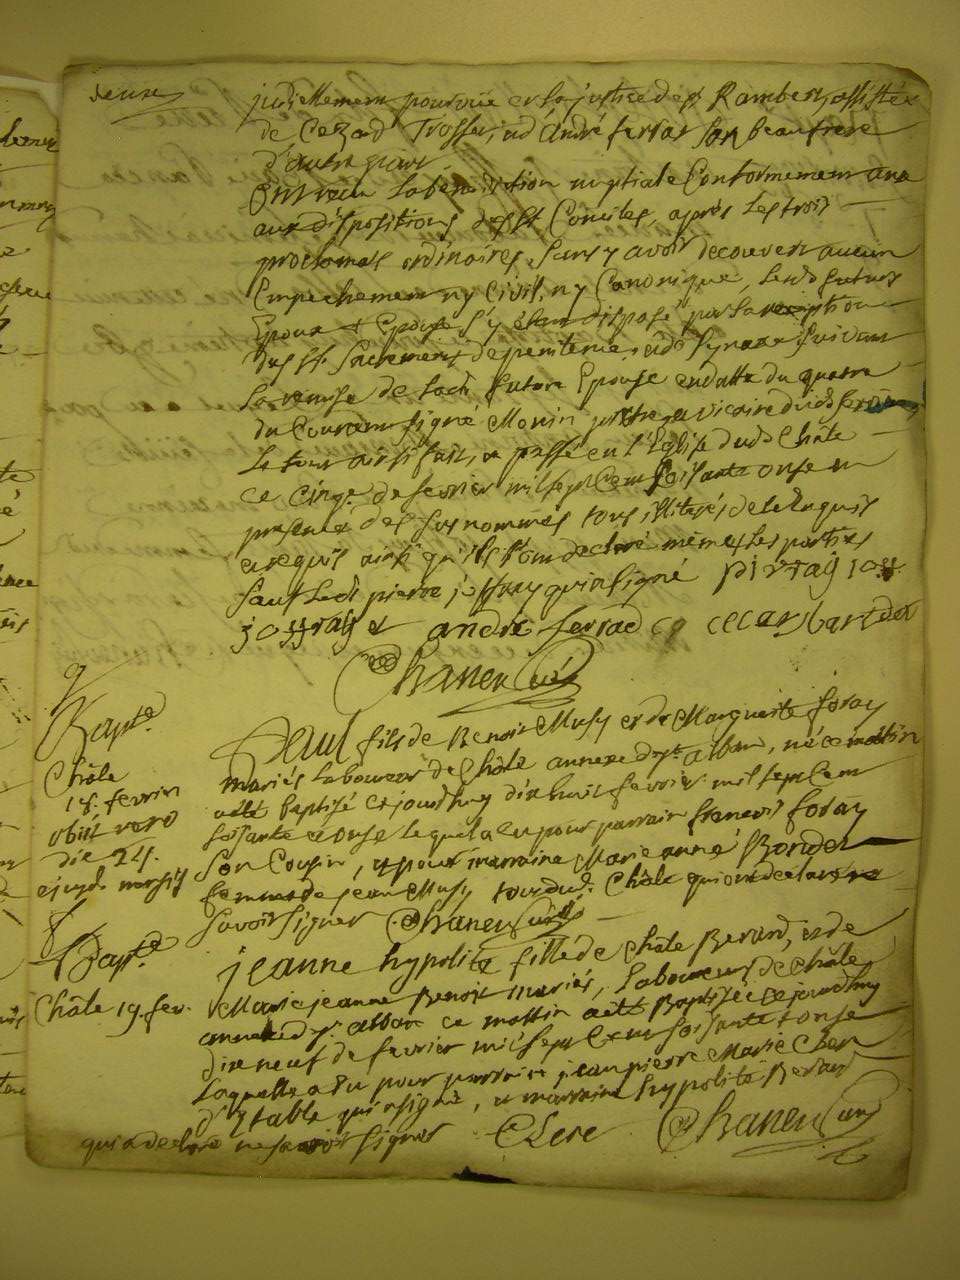 deux
judiellement pourvüe en la justice de st Rambert, assistée
de Cezard Trosset, et d'andré ferrat son beaufrere
d'autre part
Ont reçu la bénédiction nuptiale Conformement
aux dispositions des sts Conciles, après les trois
proclamats ordinaires, sans y avoir decouvert aucun
Empechement ny Civil, ny Canonique, lesd futurs
Epoux et Epouse s'y étant disposé par la reception
des sts Sacrements de penitence, et de suivant
la remise de ladt future Epouse en datte du quatre
du Courant signé Monin prêtre et vicaire dud
le tout ainsi fait, et passé en l'Eglise dud Châle
ce cinq.e de fevrier mil sept Cent soisante onse en
presence des susnommés tous illiterés de le
requis ainsi qu'ils l'ont declaré même les parties
sauf ledt pierre joffray qui a signé
joffray andré ferrad
Chanen Curé
Bapt.e
Châle
18. fevrier
obiit vero
die 24.
ejusd. mensis
Paul fils de Benoit Musy et de Marguerite foray
mariés laboureurs de Châle annexe de st alban, né ce mattin
a été baptisé cejourdhuy dixhuit fevrier mil sept Cent
soisante et onse lequel a eu pour parrain francois foray
son Cousin, et pour marraine Marie anne Bondet
femme de jean Musy tous dud. Châle qui ont declaré ne
savoir signer Chanen Curé
Bapt.e
Châle 19. fev.
jeanne hypolite fille de Châle Berard, et de
Marie jeanne Benoit mariés, laboureurs de Châle
annexe de st. alban ce mattin a été Baptisée cejourdhuy
dixneuf de fevrier mil sept Cent soisante et onse
laquelle a eu pour parrain jean pierre Marie Cler
d'Etable qui a signé, et marraine hypolite Berard
qui a declaré ne savoir signer Clere Chanen Curé